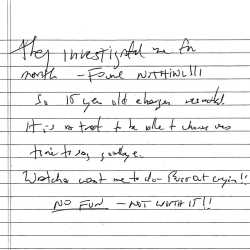 They investigated me for
month – FOUND NOTHING!!!
So 15 year old charges resulted.
It is no treat to be able to choose ones
time to say goodbye.
Watcha want me to do – Burst out crying!!
NO FUN – NOT WORTH IT!!